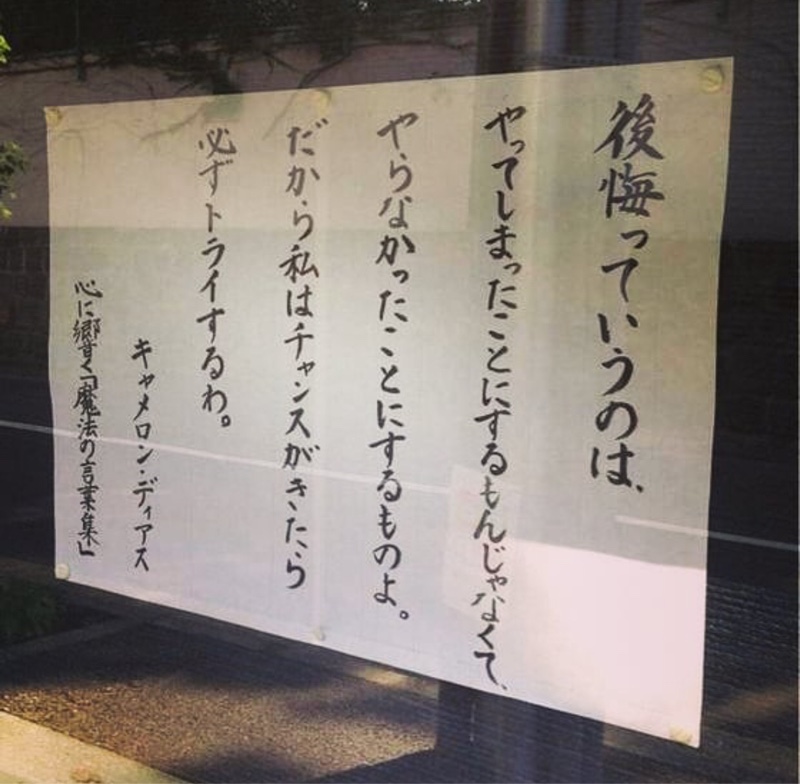 後悔っていうのは、
やってしまったことにするもんじゃなくて、
やらなかったことにするものよ。
だから私はチャンスがきたら
必ずトライするわ。
キャメロン・ディアス
心に響く「魔法の言葉集」